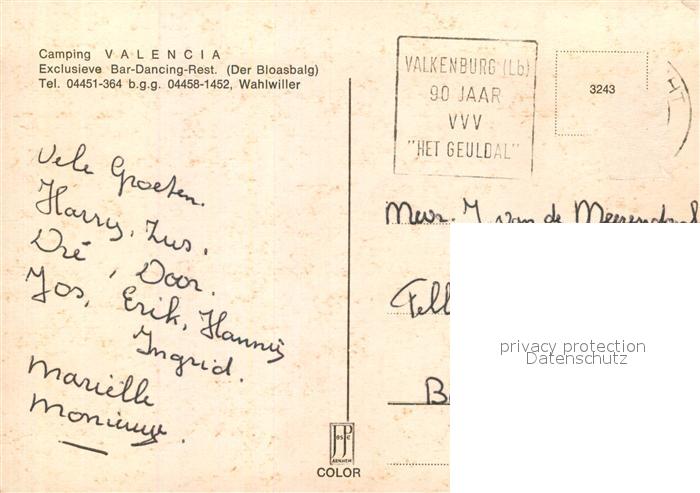 Camping VALENCIA
Exclusieve Bar-Dancing-Rest. (Der Bloasbalg)
Tel. 04451-364 b.g.g. 04458-1452, Wahlwiller
VALKENBURG (Lb)
90 JAAR
VVV
"HET GEULDAL"
3243
HT
Vele Groeten.
Harry, Zus,
Dré, Door.
Jos, Erik, Hannie
Ingrid.
Mariëlle
Monique.
Mevr. J. van de
Fell
B
privacy protection
Datenschutz
JosPé
ARNHEM
COLOR